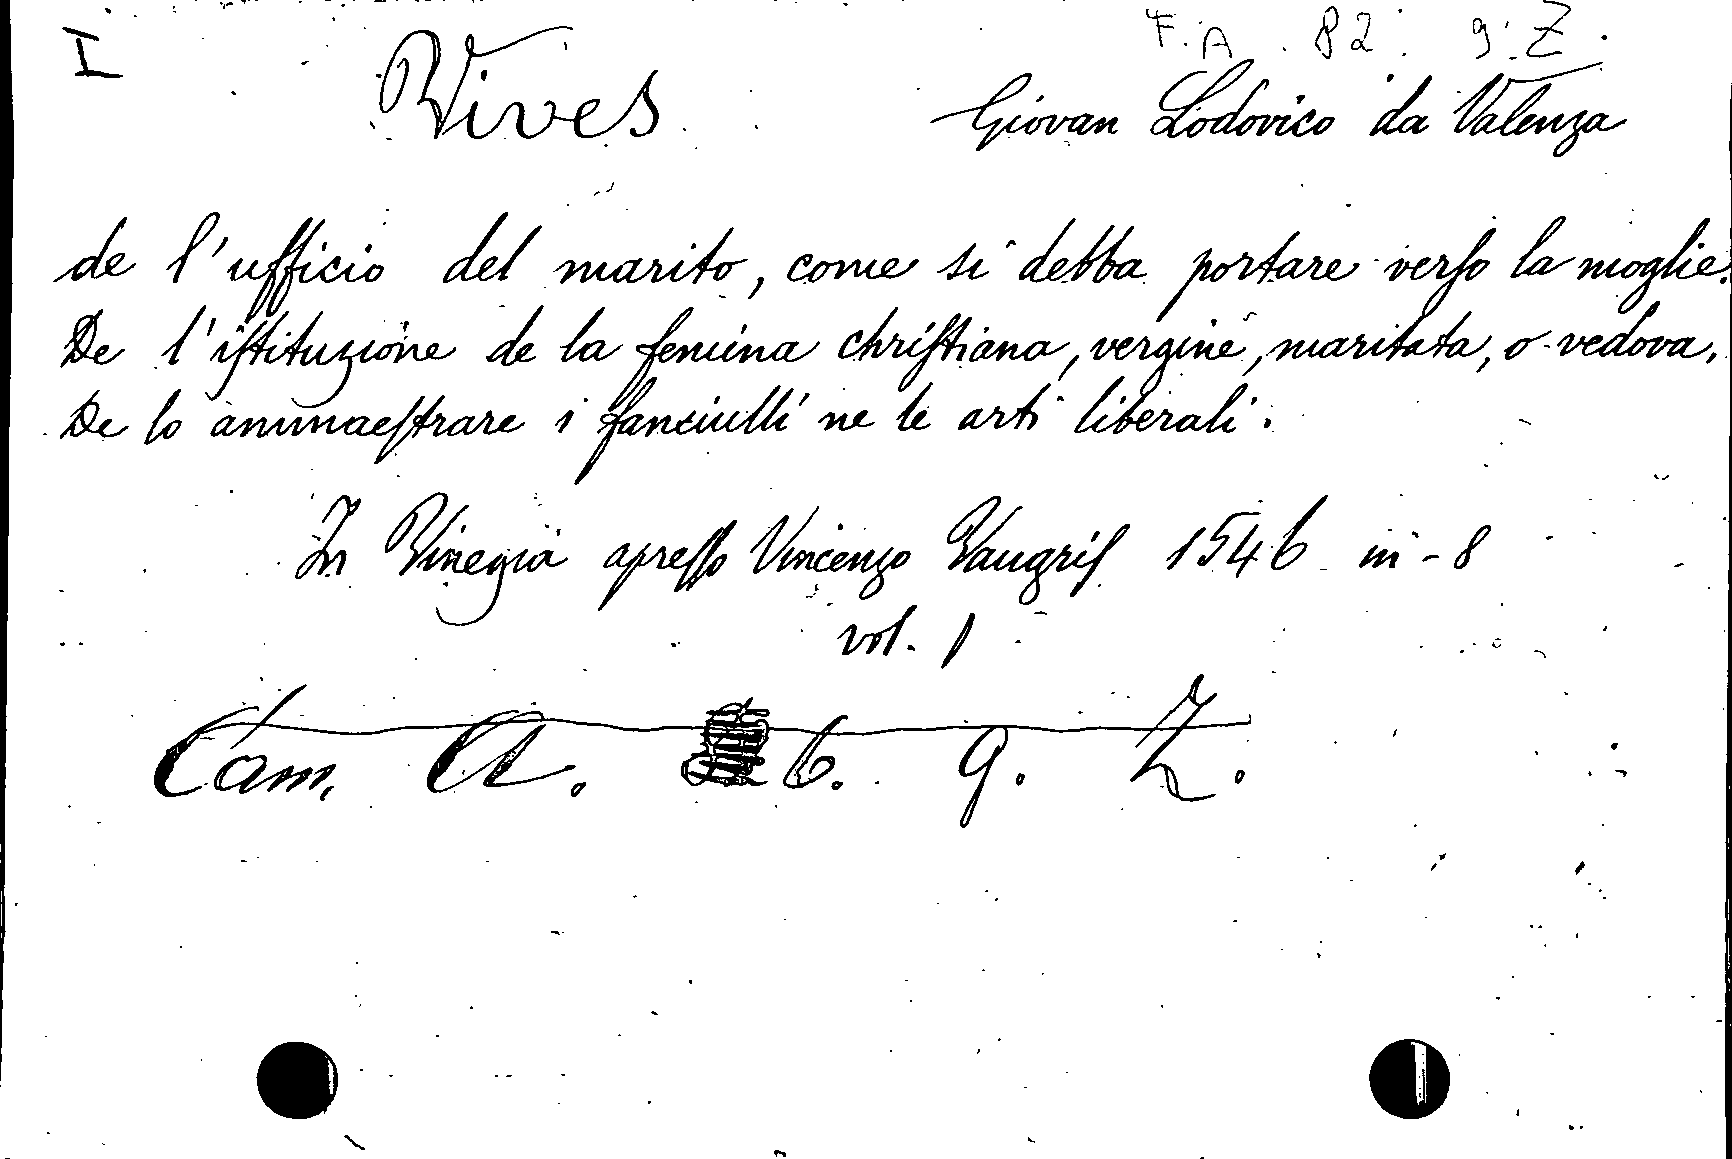 I
F. A. 82. 9. Z.
Vives Giovan Lodovico da Valenza
de l'ufficio del marito, come si debba portare verſo la moglie.
De l'iſtituzione de la femina chriſtiana, vergine, maritata, o vedova.
De lo ammaeſtrare i fanciulli ne le arti liberali.
In Vinegia apreſſo Vincenzo Vaugriſ 1546 in-8
vol. 1
Cam. A. 6. 9. Z.